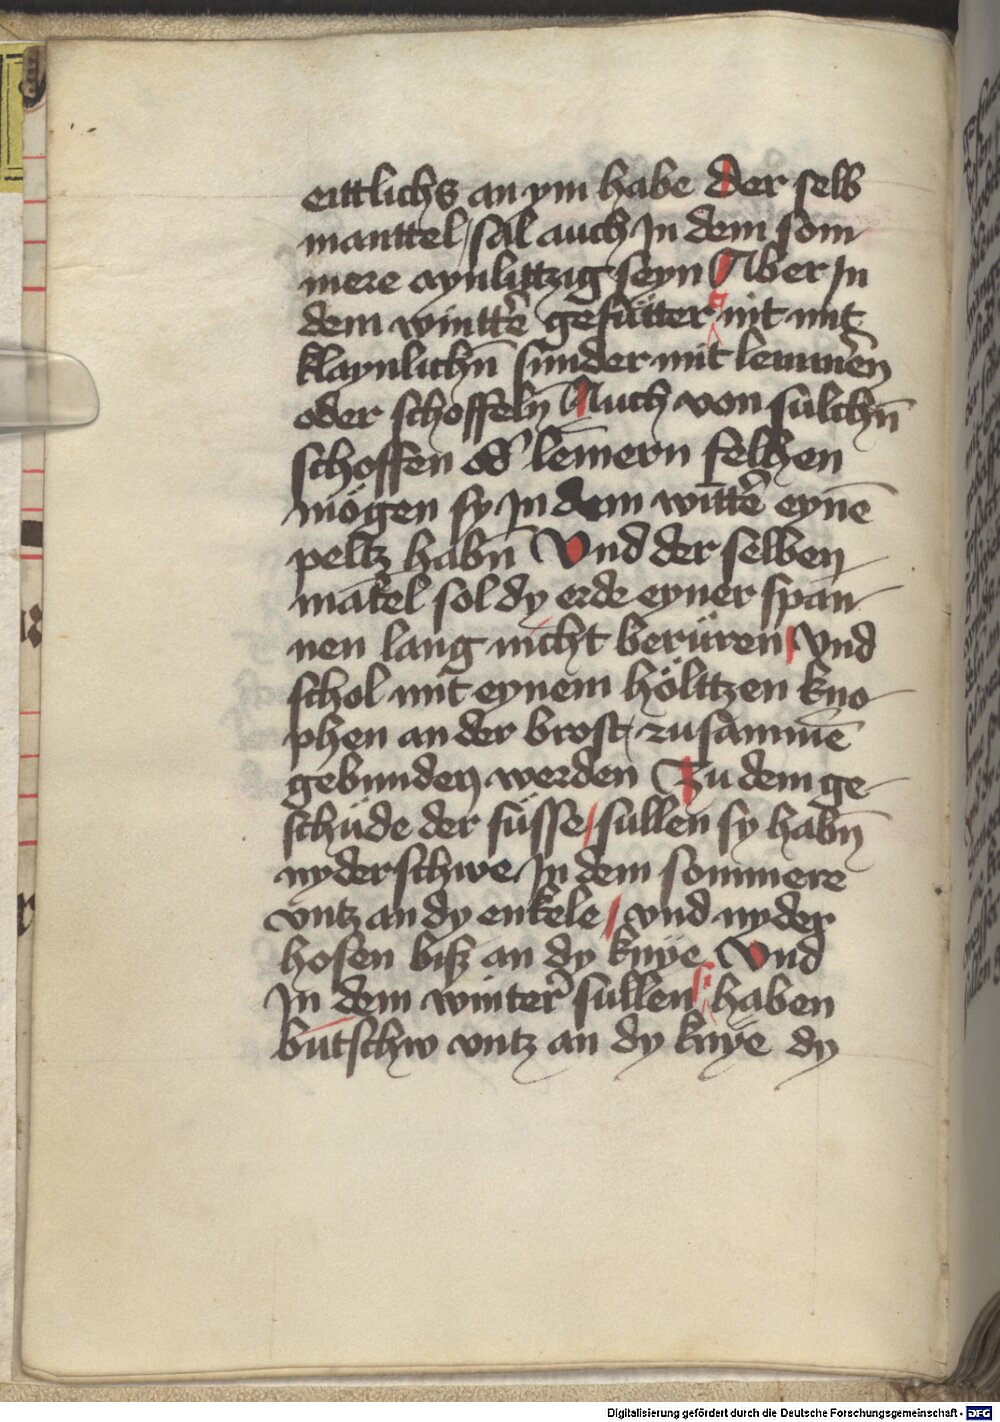 eittlichs an ym habe Der selb
manttel / sal auch In dem som
mere aynlittzig seyn Aber In
dem winttē gefütter nit mit
klaynlichn̄ sunder mit lemmēn
oder schoffeln̄ Auch von sulchn̄
schoffen od' lēmern felhen
mögen sy In dem wīttē eynē
peltz habn̄ Vnd der selben
mātel sol dy erde eyner span
nen lang nicht berüren / Vnd
schol mit eynem höltzen kno
phen an der brost / zusammē
gebunden werden Zu dem ge
schüde der füsse / sullen sy habn̄
nyderschwe In dem sommere
vntz an dy enkele / vnd nyder
hosen bisz an dy knye Vnd
In dem winter sullen si haben
butschw vntz an dy knye dy
Digitalisierung gefördert durch die Deutsche Forschungsgemeinschaft - DFG